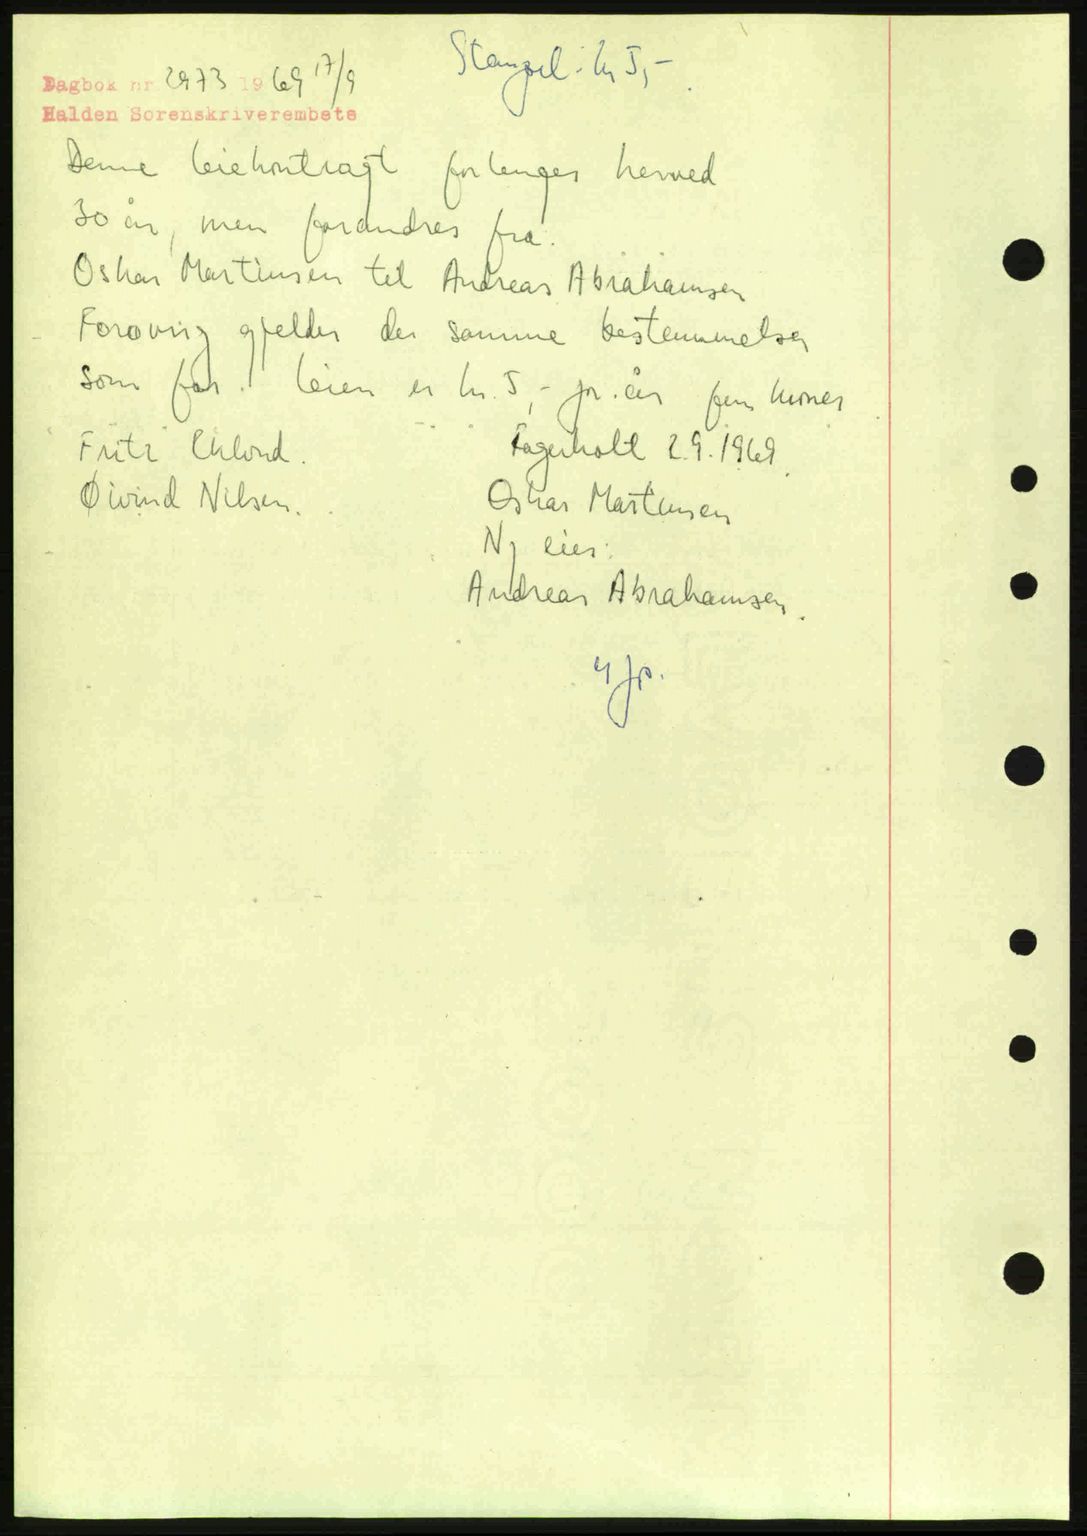 Stempel: kr 5,-
Dagbok nr 2973 1969 17/9
Halden Sorenskriverembete
Denne leiekontragt forlenges herved
30 år, men forandres fra.
Oskar Martinsen til Andreas Abrahamsen
Forøvrig gjelder de samme bestemmelser
som før. leien er kr. 5,- pr. år fem kroner
Fritz Fagerholt 2.9.1969
Øivind Nilsen. Oskar Martinsen
Ny eier:
Andreas Abrahamsen.